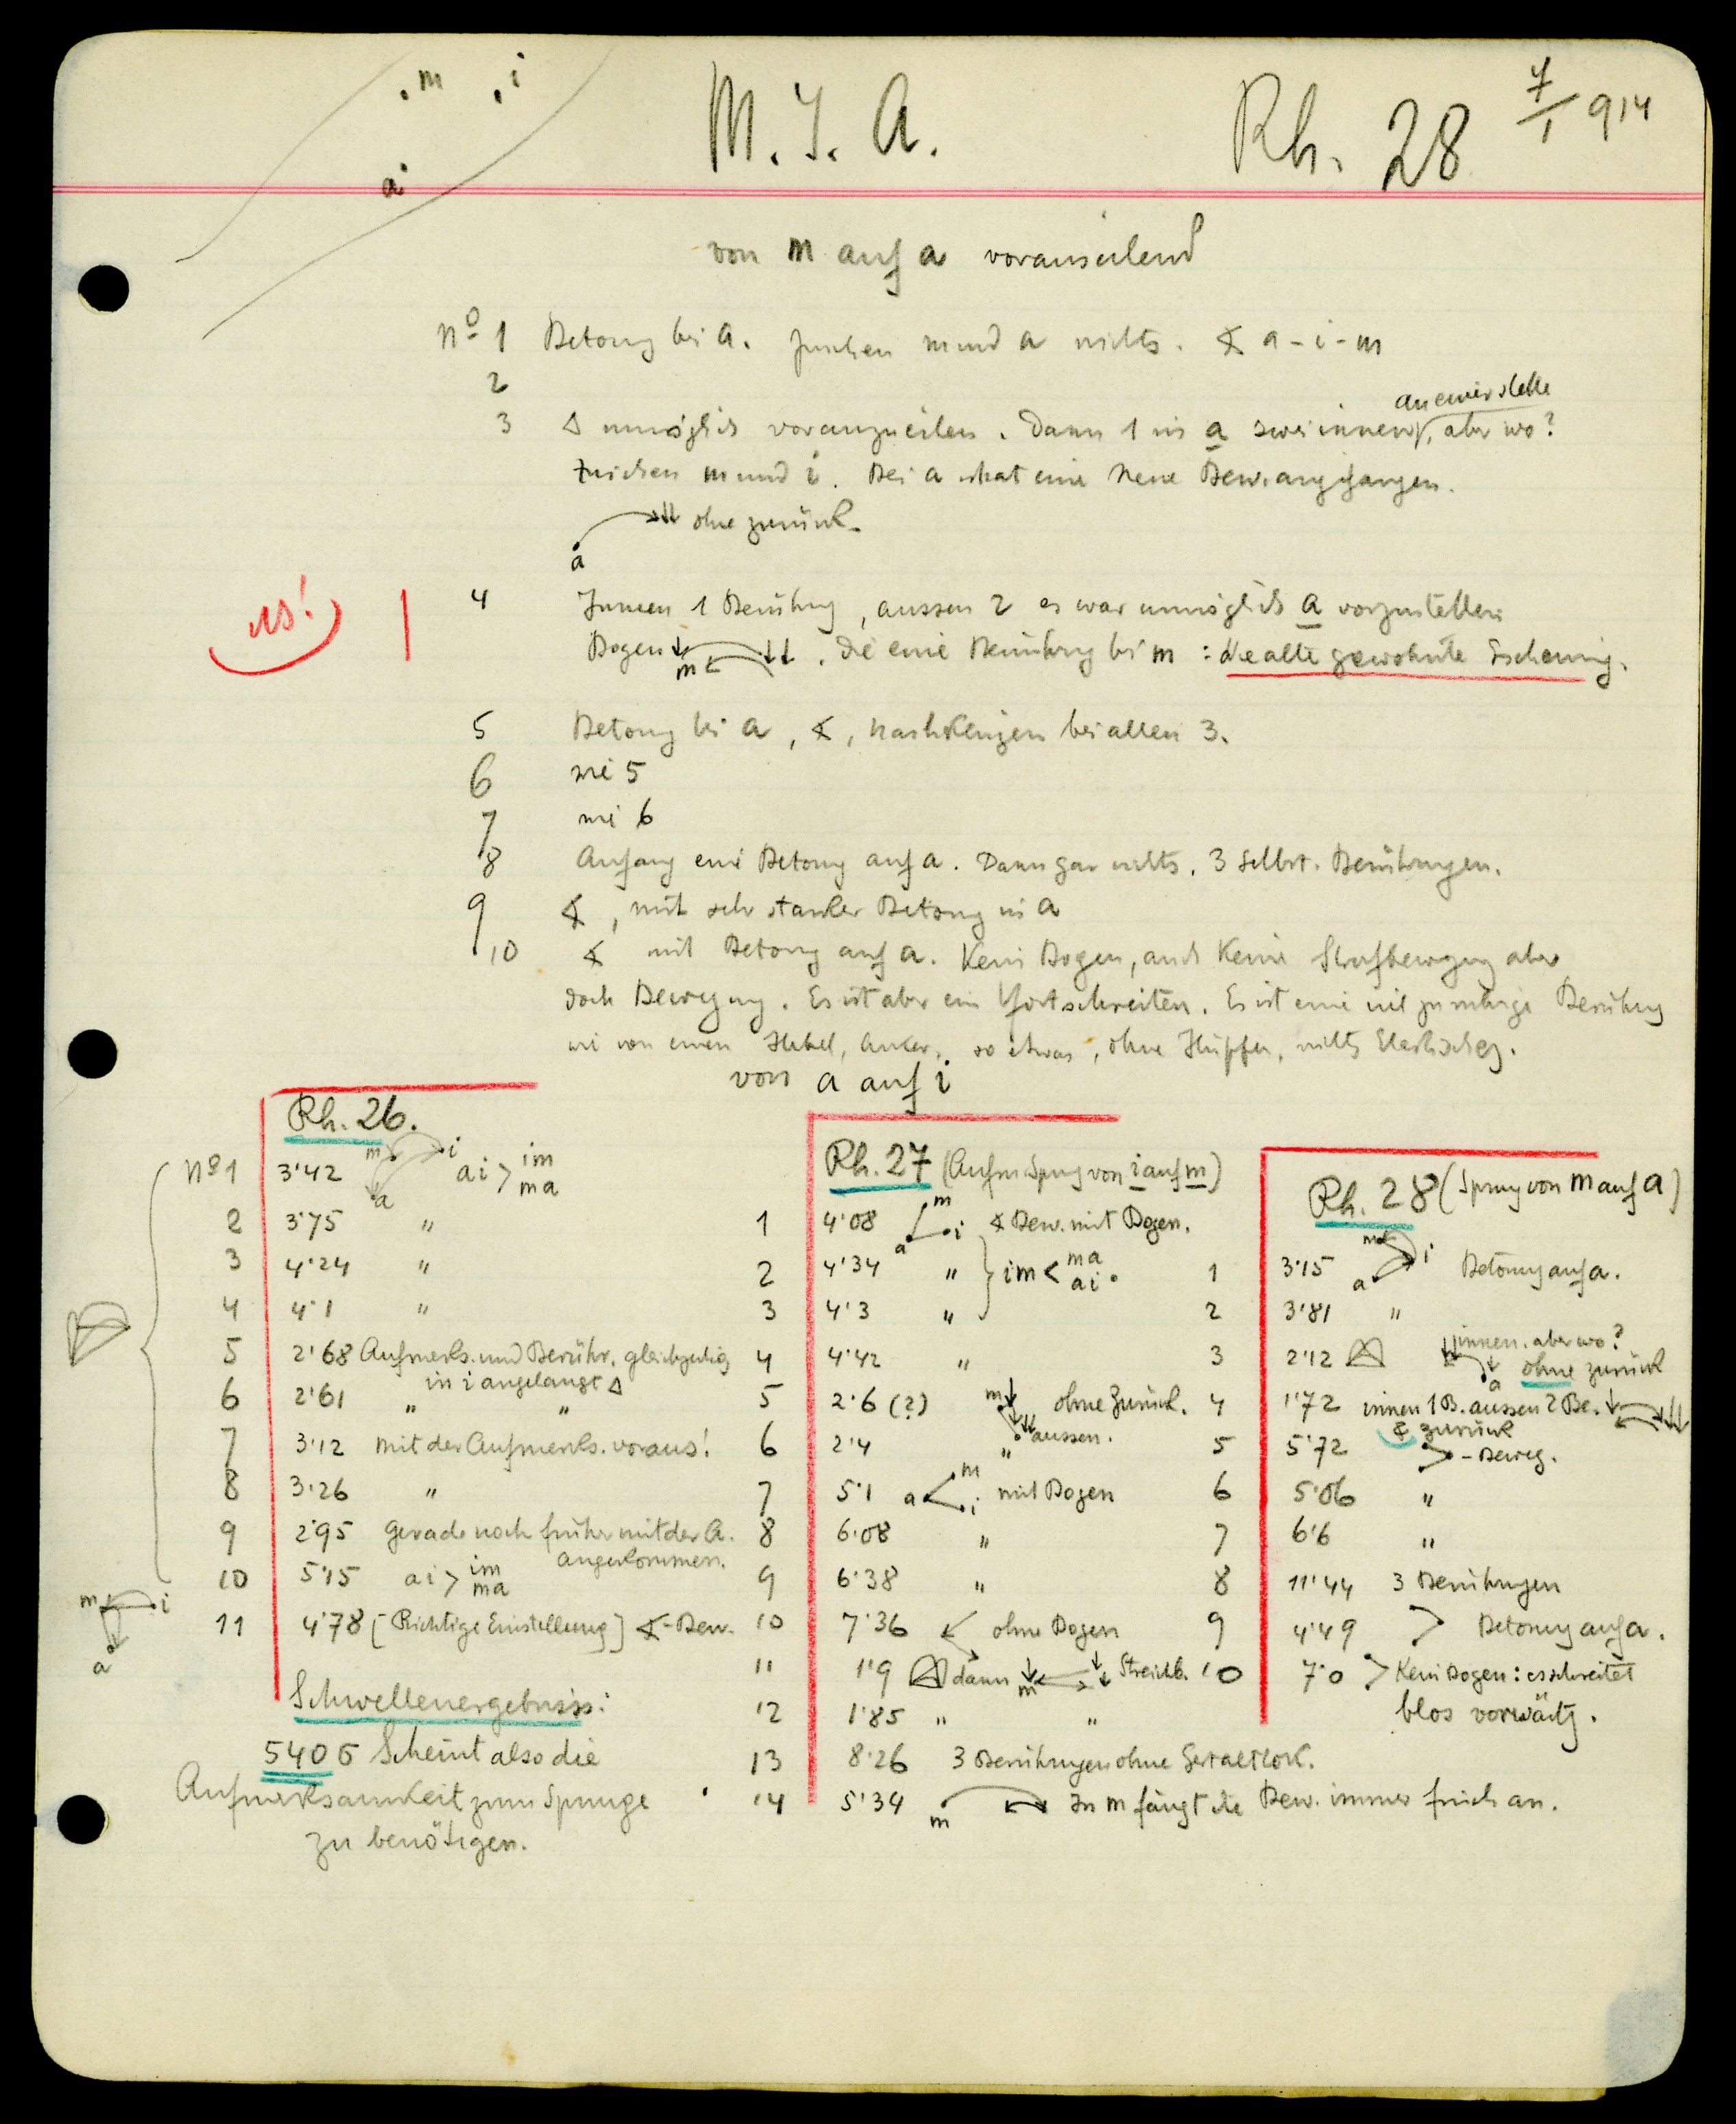 . m . i
a
M. I. A.
Rh. 28 7/I 914
von m auf a vorauseilend
No 1 Betong bei a. Zwischen m und a nichts. ∢ a - i - m
2
an einer Stelle
3 Δ unmöglich voranzueilen. Dann 1 in a zwei innen, aber wo?
Zwischen m und i. Bei a hat eine neue Bew. angefangen.
ohne zurück.
a
NB!
4 Innen 1 Berührg, aussen 2 es war unmöglich a vorzustellen
Bogen ↓ m ↓↓. Die eine Berührg bei m : die alte gewohnte Erscheinung.
5 Betong bei a, ∢, nachklingen bei allen 3.
6 wie 5
7 wie 6
8 Anfang eine Betong auf a. Dann gar nichts. 3 selbst. Berührungen.
9 ∢, mit sehr starker Betong in a
10 ∢ mit Betong auf a. Kein Bogen, auch keine Streifbewegung aber
doch Bewegung. Es ist aber ein Fortschreiten. Es ist eine Berührg
wie von einem Hebel, Anker, so etwas, ohne Hüpfen, nichts Elastisches.
von a auf i
Rh. 26.
No 1 3'42 m i a ai > im ma
2 3'75 "
3 4'24 "
4 4'1 "
5 2'68 Aufmerks. und Berühr. gleichzeitig
in i angelangt Δ
6 2'61 " "
7 3'12 mit der Aufmerks. voraus!
8 3'26 "
9 2'95 gerade noch früher mit der A.
angekommen.
10 5'15 ai > im ma
m i
a
11 4'78 [Richtige Einstellung] ∢-Bew.
Schwellenergebniss:
540 σ Scheint also die
Aufmerksamkeit zum Sprunge
zu benötigen.
Rh. 27 (Aufm Sprung von i auf m)
1 4'08 m a i ∢ Bew. mit Bogen.
2 4'34 " } im < ma ai
3 4'3 "
4 4'42 "
5 2'6 (?) m ↓ ohne Zurück.
↓↓ aussen.
6 2'4 "
7 5'1 a m i mit Bogen
8 6'08 "
9 6'38 "
10 7'36 ohne Bogen
11 1'9 dann ↓ m ↓↓ Streichb.
12 1'85 " "
13 8'26 3 Berührungen ohne Gestaltcharakt.
14 5'34 m In m fängt die Bew. immer frisch an.
Rh. 28 (Sprung von m auf a)
1 3'15 m i a Betonung auf a.
2 3'81 "
3 2'12 ↓↓ innen. aber wo?
↓ a ohne zurück
4 1'72 innen 1 B. aussen 2 Be. ↓ ↓↓
& zurück
5 5'72 > - Beweg.
6 5'06 "
7 6'6 "
8 11'44 3 Berührungen
9 4'49 > Betonung auf a.
10 7'0 > Kein Bogen: es schreitet
blos vorwärts.